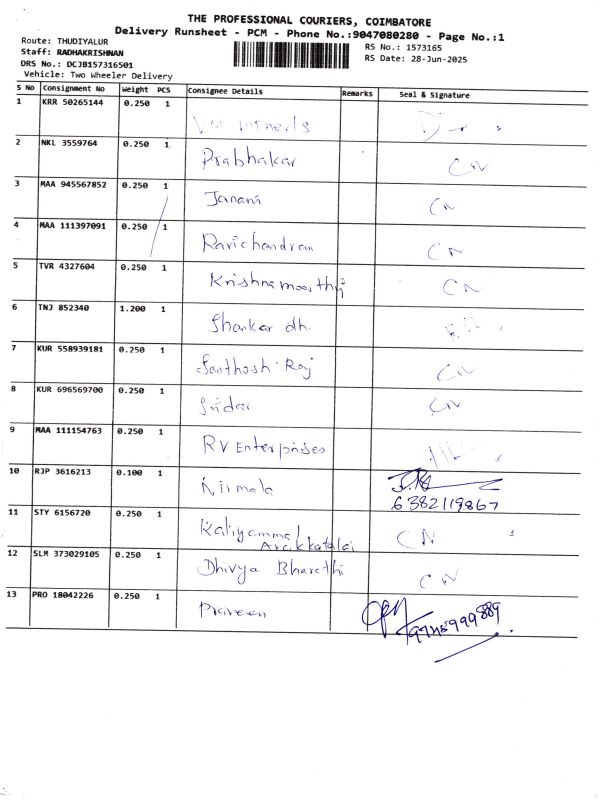 THE PROFESSIONAL COURIERS, COIMBATORE
Delivery Runsheet - PCM - Phone No.:9047080280 - Page No.:1
Route: THUDIYALUR
RS No.: 1573165
Staff: RADHAKRISHNAN
RS Date: 28-Jun-2025
DRS No.: DCJB157316501
Vehicle: Two Wheeler Delivery
S No Consignment No Weight PCS Consignee Details Remarks Seal & Signature
1 KRR 50265144 0.250 1
2 NKL 3559764 0.250 1 Prabhakar CN
3 MAA 945567852 0.250 1 Janani CN
4 MAA 111397091 0.250 1 Ravichandran CN
5 TVR 4327604 0.250 1 Krishnamoorthy CN
6 TNJ 852340 1.200 1 Shankar dh.
7 KUR 558939181 0.250 1 Santhosh Raj CN
8 KUR 696569700 0.250 1 Sridar CN
9 MAA 111154763 0.250 1 RV Enterprises
10 RJP 3616213 0.100 1 Nirmala
6382119867
11 STY 6156720 0.250 1 Kaliyammal CN
Arakkatalai
12 SLM 373029105 0.250 1 Dhivya Bharathi CN
13 PRO 18042226 0.250 1 Praveen